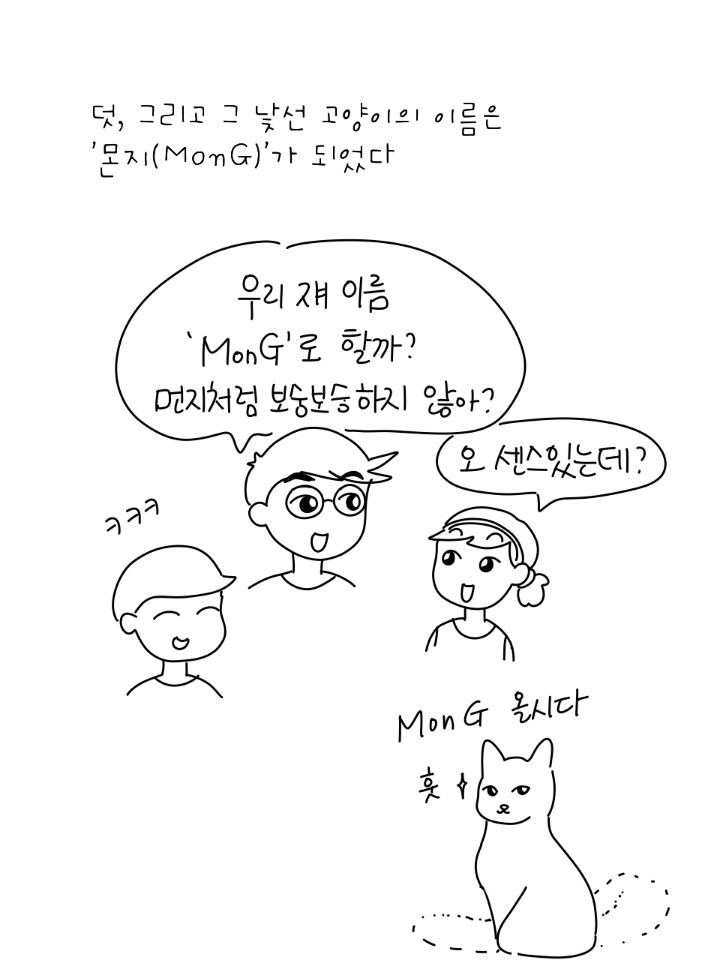 덧, 그리고 그 낯선 고양이의 이름은
'몬지(MonG)'가 되었다
우리 쟤 이름
'MonG'로 할까?
먼지처럼 보숭보숭하지 않아?
오 센스있는데?
ㅋㅋㅋ
MonG 올시다
훗